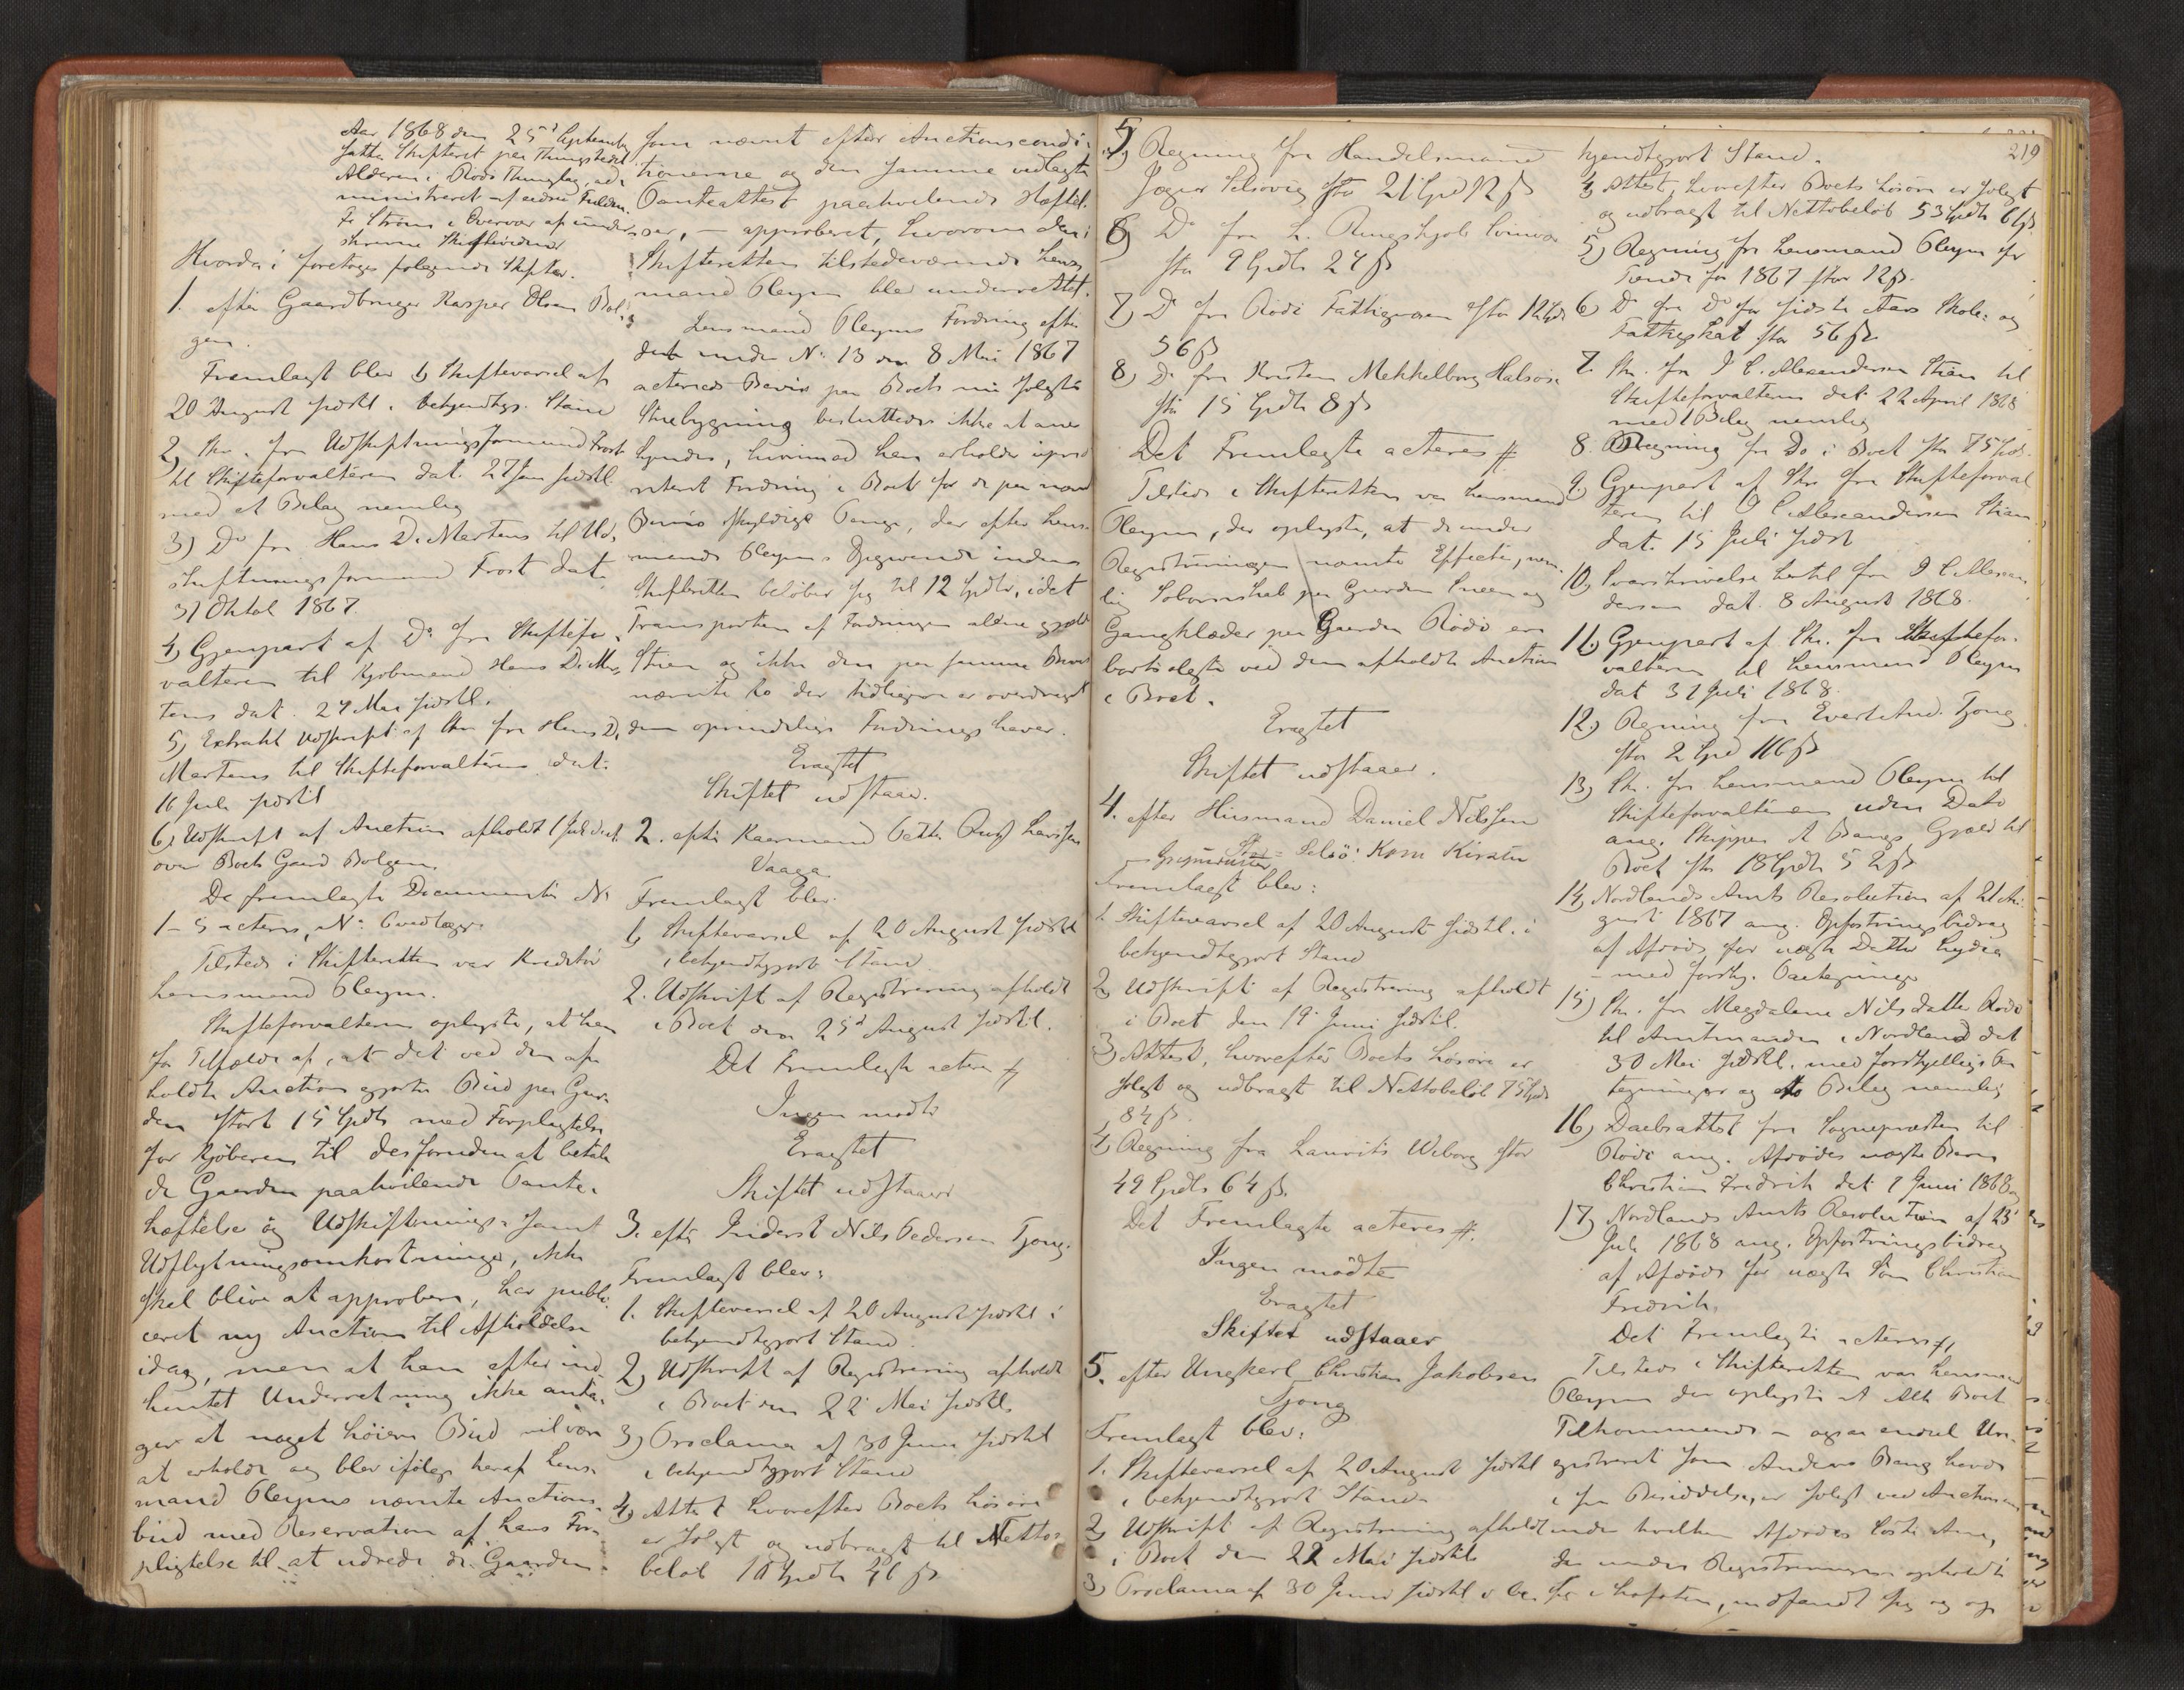 Aar 1868 den 25d September
sattes Skifteret paa Thingstedet
Alderen i Rødø Thinglag, ad-
ministreret af
Strøm i Overvær af under-
skrevne Skiftevidner
Hvorda i foretoges følgende Skifter.
1. efter Gaardbruger Kasper Olsen Bol-
gen.
Fremlagt blev 1, Skiftevarsel af
20 August sidstl. i bekjendtgj. Stand
2, Skr. fra Udskiftningsformand Frost
til Skifteforvalteren dat. 27 Jan sidstl
med et Bilag nemlig
3) Do fra Hans D. Martens til Ud-
skiftningsformand Frost dat.
31 Oktob 1867.
4, Gjenpart af Do fra Skiftefor-
valteren til Kjøbmand Hans D. Mar-
tens dat. 24 Mai sidstl.
5, Extrakt Udskrift af Skr fra Hans D.
Martens til Skifteforvalteren dat.
16 Juli sidstl
6, Udskrift af Auction afholdt 1 Juli
over Boets Gaard Bolgen.
De fremlagte Documenter No
1-5 acteres, No 6 vedlægges
Tilstede i Skifteretten var Kreditor
Lensmand Oleyns.
Skifteforvalteren oplyste, at han
for Tilfælde af, at det ved den af-
holdte Auction gjorte Bud paa Gaar-
den stort 15 Spdlr med Forpligtelse
for Kjøberen til desforuden at betale
de Gaarden paahvilende Pante-
hæftelse og Udskiftnings- samt
Udflytningsomkostninger, ikke
skal blive at approbere, har publi-
ceret ny Auction til Afholdelse
idag, men at han efter ind-
hentet Underretning ikke anta-
ger at noget høiere Bud vil være
at erholde og blev ifølge heraf Lens-
mand Oleyns nævnte Auctions-
bud med Reservation af hans For-
pligtelse til at udrede de Gaarden
som nævnt efter Auctionscondi-
tionerne og den samme vedlagte
Panteattest paahvilende Hæftel-
ser, - approberet, hvorom den i
Skifteretten tilstedeværende Lens-
mand Oleyn blev underrettet.
Lensmand Oleyns Fordring efter
det under No 13 den 8 Mai 1867
acterede Bevis paa Boets nu solgte
Stuebygning besluttedes ikke at aner-
kjendes, hvorimod han erholder uprio-
riteret Fordring i Boet for de paa nævnte
Beviis skyldige Penge, der efter Lens-
mands Oleyns Opgivende inden
Skifteretten beløber sig til 12 Spdlr, idet
Transporten af Fordringen alene gjælder
Stuen og ikke den paa samme Bevis
nævnte Ko der tidligere er overdraget
den oprindelige Fordringshaver.
Eragtet
Skiftet udstaaer.
2. efter Kaarmand Petter Larssen
Vaage.
Fremlagt blev.
1, Skiftevarsel af 20 August sidstl
i bekjendtgjort Stand
2. Udskrift af Registrering afholdt
i Boet den 25d August sidstl.
Det Fremlagte acteres
Ingen mødte
Eragtet
Skiftet udstaaer
3. efter Inderst Nils Pedersen Tjong.
Fremlagt blev:
1. Skiftevarsel af 20 August sidstl i
bekjendtgjort Stand.
2, Udskrift af Registrering afholdt
i Boet den 22 Mai sidstl.
3, Proclama af 30 Juni sidstl
i bekjendtgjort Stand
4, Attest hvorefter Boets Løsøre
er solgt og udbragt til Netto-
beløb 10 Spdlr 46 ß
5, Regning fra Handelsmand
Jæger Selsøvig stor 21 Spd 12 ß
6) Do fra L. Ringskjob
stor 9 Spdlr 24 ß
7, Do fra Rødø Fattigvæsen stor 12 Spd
56 ß
8) Do fra Kristen Mekkelborg Halsøen
stor 15 Spdlr 8 ß
Det Fremlagte acteres
Tilstede i Skifteretten var Lensmand
Oleyn, der oplyste, at de under
Registreringen nævnte Effecter, nem-
lig
Gangklæder paa Gaarden Rødø ere
bortsolgte ved den afholdte Auction
i Boet.
Eragtet
Skiftet udstaaer.
4. efter Husmand Daniel Nilssen
Selsø: Kone Kirsten
Fremlagt blev:
1. Skiftevarsel af 20 August sidstl. i
bekjendtgjort Stand
2, Udskrift af Registrering afholdt
i Boet den 19 Juni sidstl.
3, Attest, hvorefter Boets Løsøre er
solgt og udbragt til Nettobeløb 75 Spdlr
84 ß.
4, Regning fra Laurits Wiborg stor
49 Spdlr 64 ß.
Det Fremlagte acteres
Ingen mødte
Eragtet
Skiftet udstaaer
5. efter Ungkarl Christian Jakobsen
Tjong
Fremlagt blev:
1. Skiftevarsel af 20 August sidstl
i bekjendtgjort Stand
2, Udskrift af Registrering afholdt
i Boet den 22 Mai sidstl
3, Proclama af 30 Juni sidstl i be-
219
kjendtgjort Stand.
4, Attest, hvorefter Boets Løsøre er solgt
og udbragt til Nettobeløb 53 Spdlr 6 ß.
5, Regning fra Lensmand Oleyn for
Tiende for 1867 stor 12 ß.
6) Do fra Do for sidste Aars Skole- og
Fattigskat stor 56 ß
7. Skr. fra I C. Alexandersen Stien til
Skifteforvalteren dat 22 April 1868
med 1 Bilag nemlig
8. Regning fra Do i Boet stor 75
9. Gjenpart af Skr. fra Skifteforval-
teren til I C. Alexandersen Stien
dat. 15 Juli sidst
10, Svarskrivelse hertil fra I C Alexan-
dersen dat. 8 August 1868.
11, Gjenpart af Skr. fra Skiftefor-
valteren til Lensmand Oleyn
dat 31 Juli 1868.
12, Regning fra Evert And. Tjong
stor 2 Spd 116 ß
13, Skr. fra Lensmand Oleyn til
Skifteforvalteren uden Dato
ang. Skipper A Bangs Gjæld til
Boet stor 18 Spdlr 52 ß
14, Nordlands Amts Resolution af 21 Au-
gust 1867 ang. Opfostringsbidrag
af Afdøde for uægte Datter Lydia
- med forskj. Paategninger
15) Skr. fra Magdalena Nilsdatter Rødø
til Amtmanden i Nordland dat
30 Mai sidstl. med forskjellige Paa-
tegninger og to Bilag nemlig
16, Daabsattest fra Sognepræsten til
Rødø ang. Afdødes uægte Barn
Christian Fredrik dat 1 Juni 1868 og
17) Nordlands Amts Resolution af 23
Juli 1868 ang. Opfostringsbidrag
af Afdøde for uægte Søn Christian
Fredrik.
Det Fremlagte acteres
Tilstede i Skifteretten var Lensmand
Oleyn der oplyste at Alt Boet
Tilkommende - ogsaa endeel Ure-
gistreret som Anders Bang havde
i sin Besiddelse, er solgt ved Auctionen
under hvilken Afdødes
der under Registreringen opholdt
sig i Lofoten, indfandt sig og op-